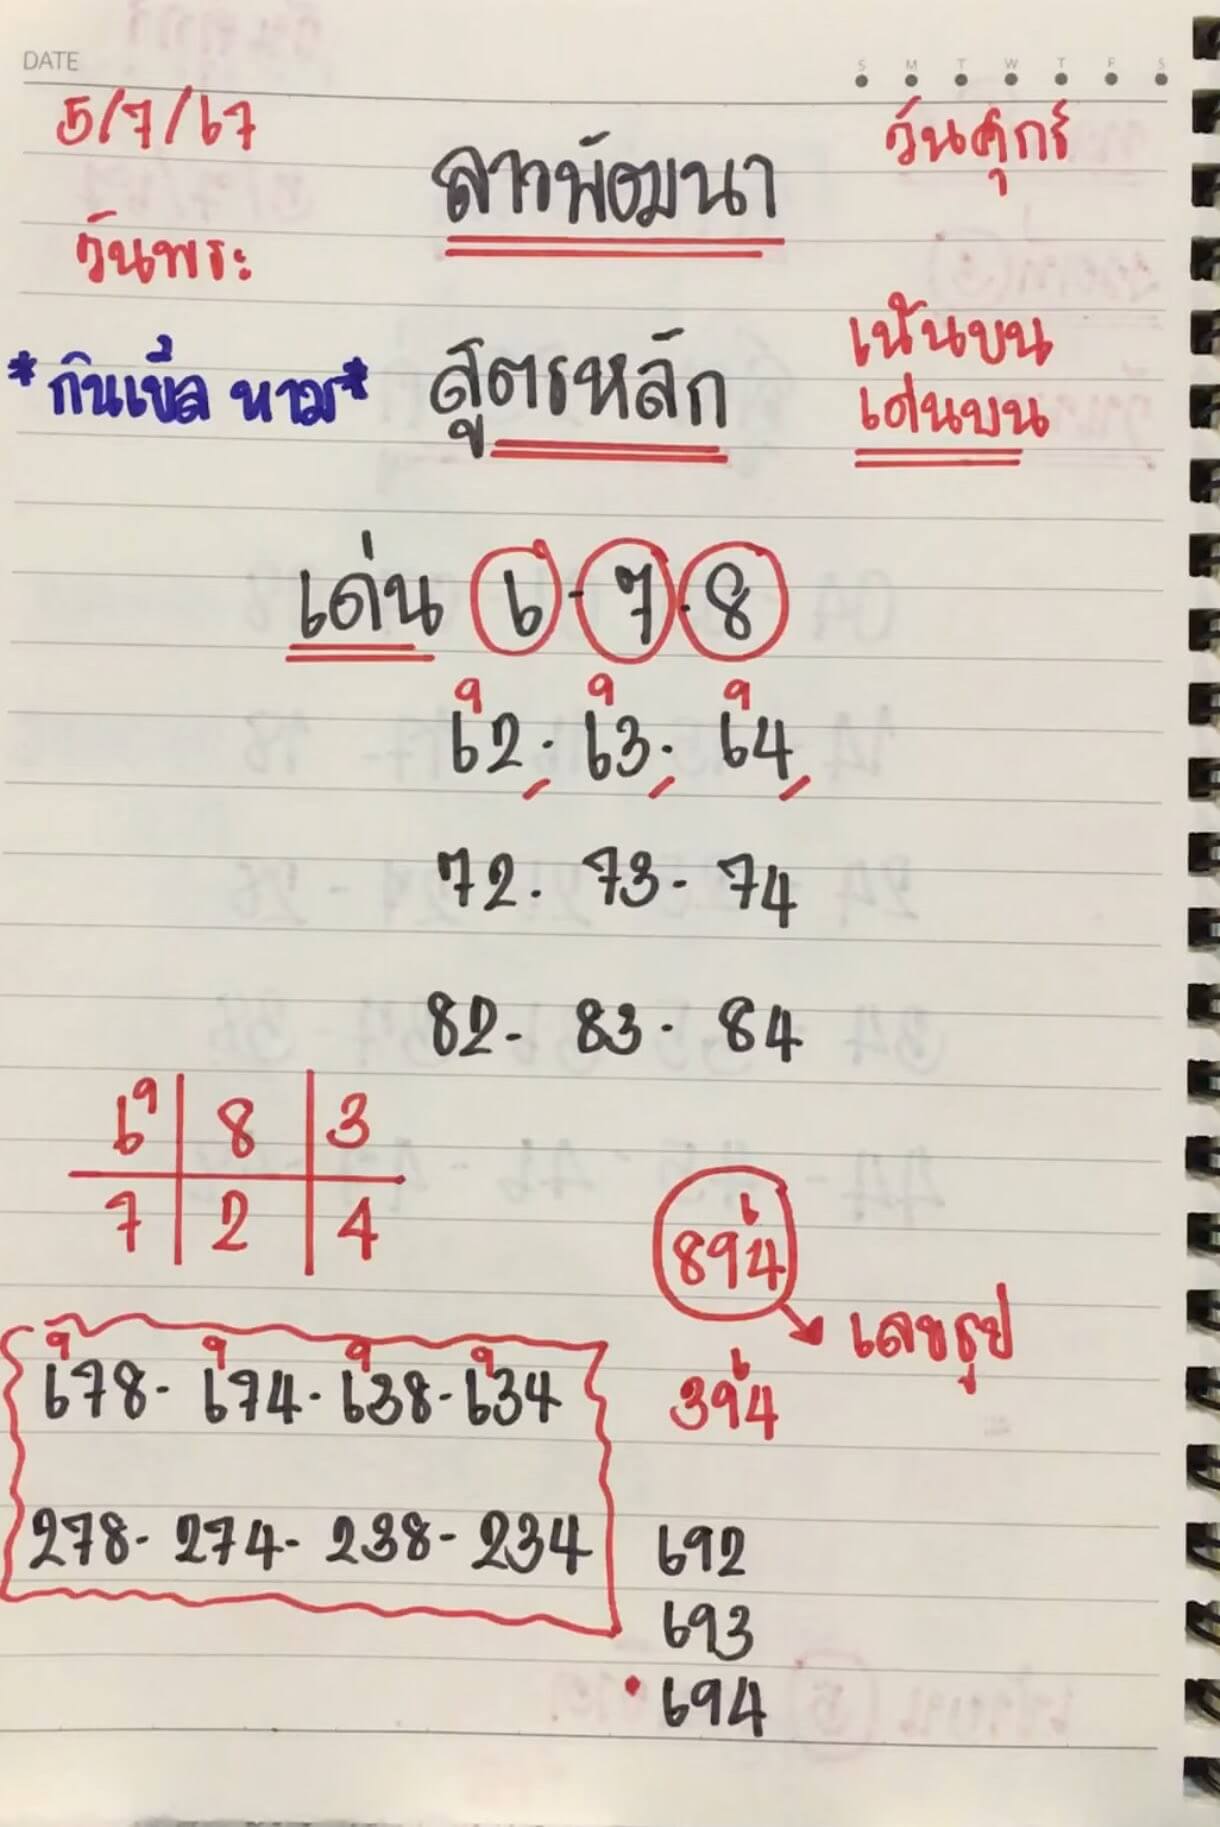 DATE
S M T W T F S
5/7/67
วันศุกร์
ลาวพัฒนา
วันพระ
เน้นบน
*กินเบิ้ล หาม*
สูตรหลัก
เด่นบน
เด่น 6-7-8
9 9 9
62. 63. 64
72. 73- 74
82- 83. 84
6 9 | 8 | 3
7 | 2 | 4
6
894
เลขธูป
9 9 9 9
678- 674- 638- 634
6
394
278- 274- 238- 234
692
693
694